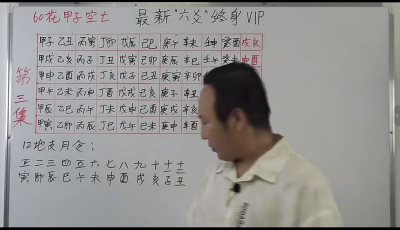 60花甲子空亡 最新"六爻"终身VIP
甲子 乙丑 丙寅 丁卯 戊辰 己巳 庚午 辛未 壬申 癸酉 戌亥
甲戌 乙亥 丙子 丁丑 戊寅 己卯 庚辰 辛巳 壬午 癸未 申酉
甲申 乙酉 丙戌 丁亥 戊子 己丑 庚寅 辛卯
甲午 乙未 丙申 丁酉 戊戌 己亥 庚子 辛丑
甲辰 乙巳 丙午 丁未 戊申 己酉 庚戌 辛亥
甲寅 乙卯 丙辰 丁巳 戊午 己未 庚申 辛酉
第三集
12地支月令：
正 二 三 四 五 六 七 八 九 十 十一 十二
寅 卯 辰 巳 午 未 申 酉 戌 亥 子 丑